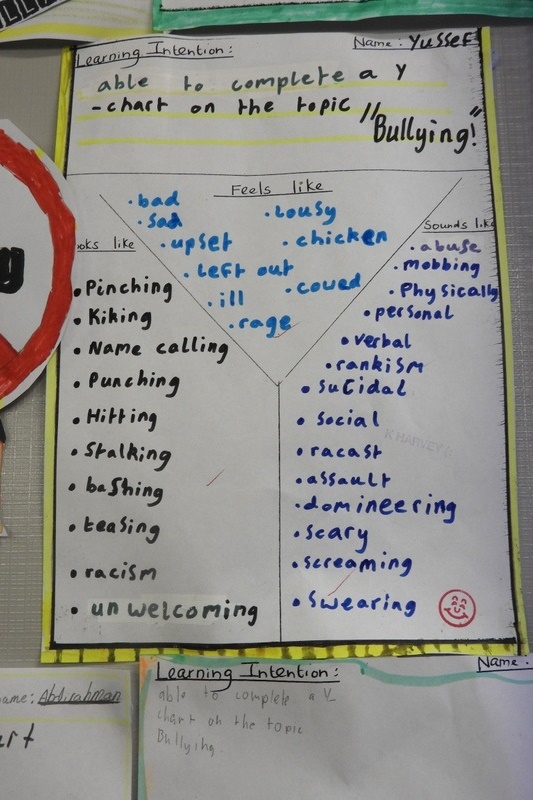 Learning Intention:
Name: Yussef
able to complete a Y
-chart on the topic
"Bullying!"
Feels like
• bad
• sad
• upset
• Left out
• ill
• rage
• Lousy
• chicken
• coued
ooks like
• Pinching
• Kiking
• Name calling
• Punching
• Hitting
• Stalking
• bashing
• teasing
• racism
• unwelcoming
Sounds like
• abuse
• mobbing
• Physically
• personal
• verbal
• rankism
• suCidal
• social
• racast
• assault
• domineering
• scary
• screaming
• Swearing
y
ame: Abdirahman
art
Learning Intention:
Name:
able to complete a Y
chart on the topic
Bullying.